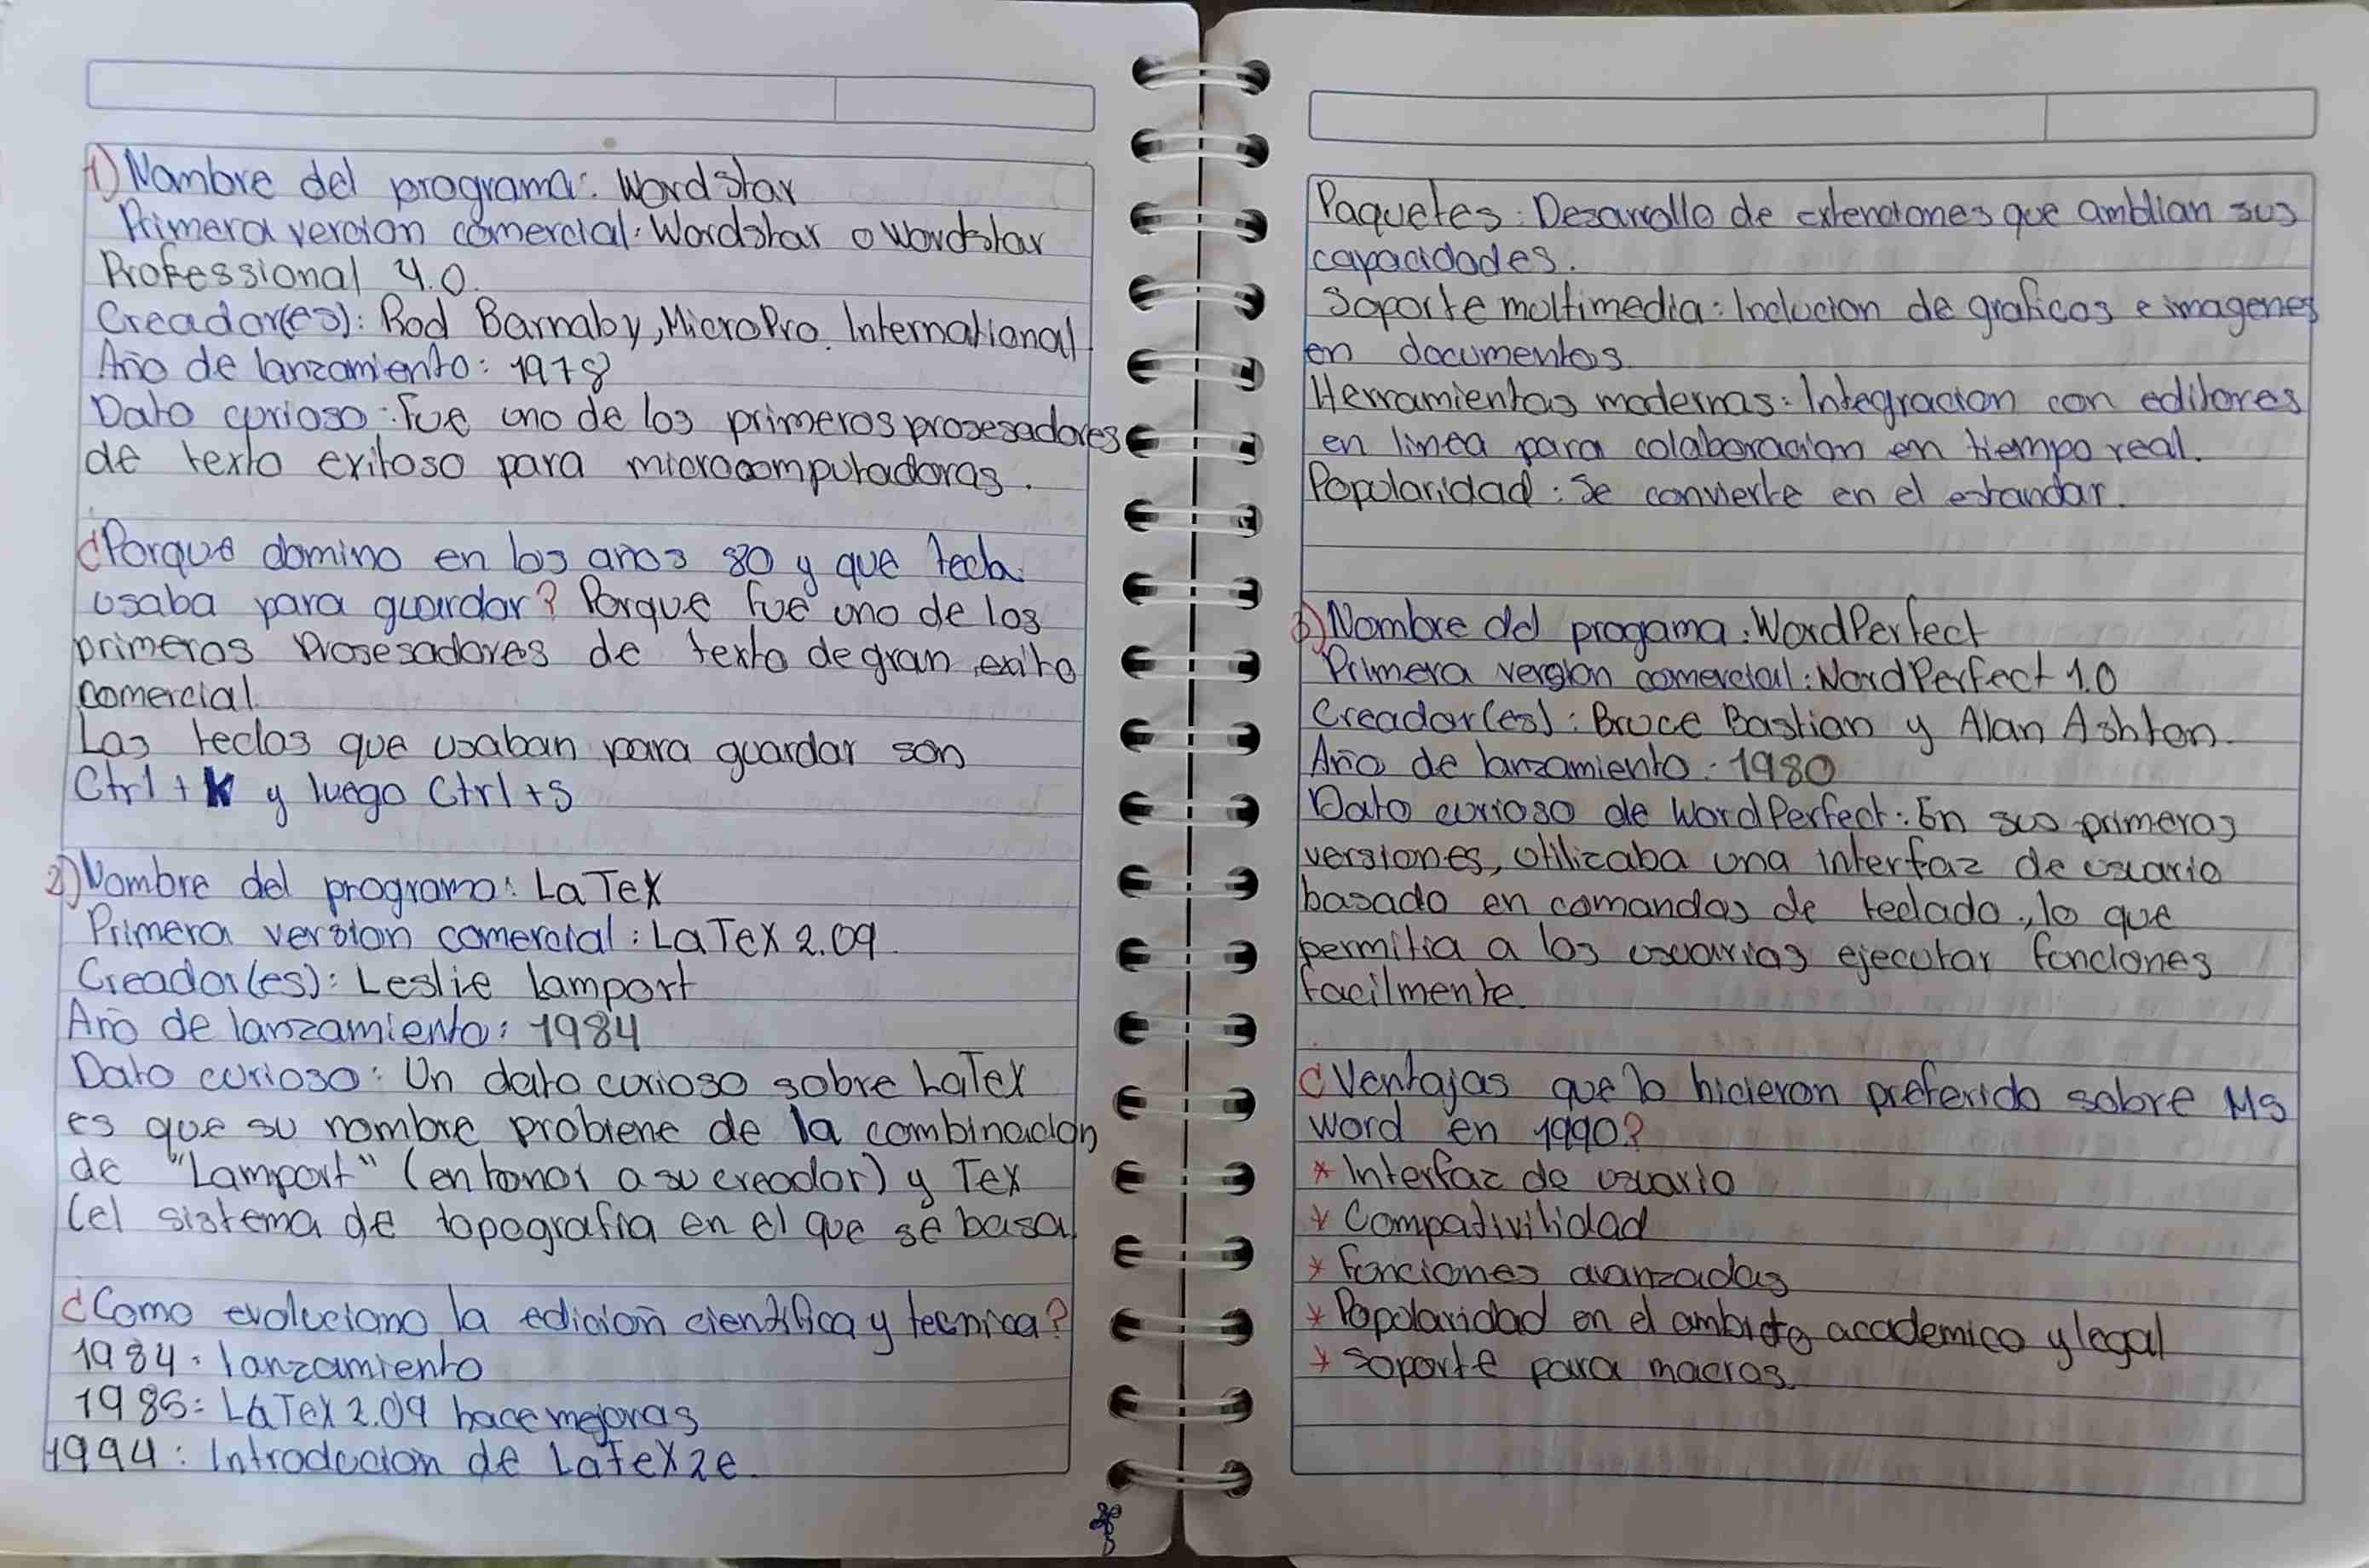 1) Nombre del programa: WordStar
Primera vercion comercial: Wordstar o Wordstar
Professional 4.0.
Creador(es): Rod Barnaby, MicroPro. International
Año de lanzamiento: 1978
Dato curioso: Fue uno de los primeros prosesadores
de texto exitoso para microcomputadoras.
¿Porque domino en los años 80 y que tecla
usaba para guardar? Porque fue uno de los
primeros prosesadores de texto de gran exito
comercial.
Las teclas que usaban para guardar son
Ctrl + K y luego Ctrl + S
2) Nombre del programa: LaTeX
Primera version comercial: LaTeX 2.09.
Creador(es): Leslie Lamport
Año de lanzamiento: 1984
Dato curioso: Un dato curioso sobre LaTeX
es que su nombre probiene de la combinacion
de "Lamport" (en honor a su creador) y Tex
(el sistema de topografia en el que se basa
¿Como evoluciono la edición cientifica y tecnica?
1984: lanzamiento
1985: LaTeX 2.09 hace mejoras
1994: Introducion de LaTeX2e.
Paquetes: Desarrollo de extenciones que amblian sus
capacidades.
Soporte multimedia: Inclucion de graficos e imagenes
en documentos.
Herramientas modernas: Integracion con editores
en linea para colaboracion en tiempo real.
Popularidad: Se convierte en el estandar.
3) Nombre del progama: WordPerfect
Primera version comercial: WordPerfect 1.0
Creador(es): Bruce Bastian y Alan Ashton.
Año de lanzamiento: 1980
Dato curioso de WordPerfect: En sus primeros
versiones, utilizaba una interfaz de usuario
basado en comandos de teclado, lo que
permitia a los usuarios ejecutar funciones
facilmente.
¿Ventajas que lo hicieron preferido sobre MS
Word en 1990?
* Interfaz de usuario
* Compativilidad
* Funciones avanzadas
* Popularidad en el ambito academico y legal
* Soporte para macros.